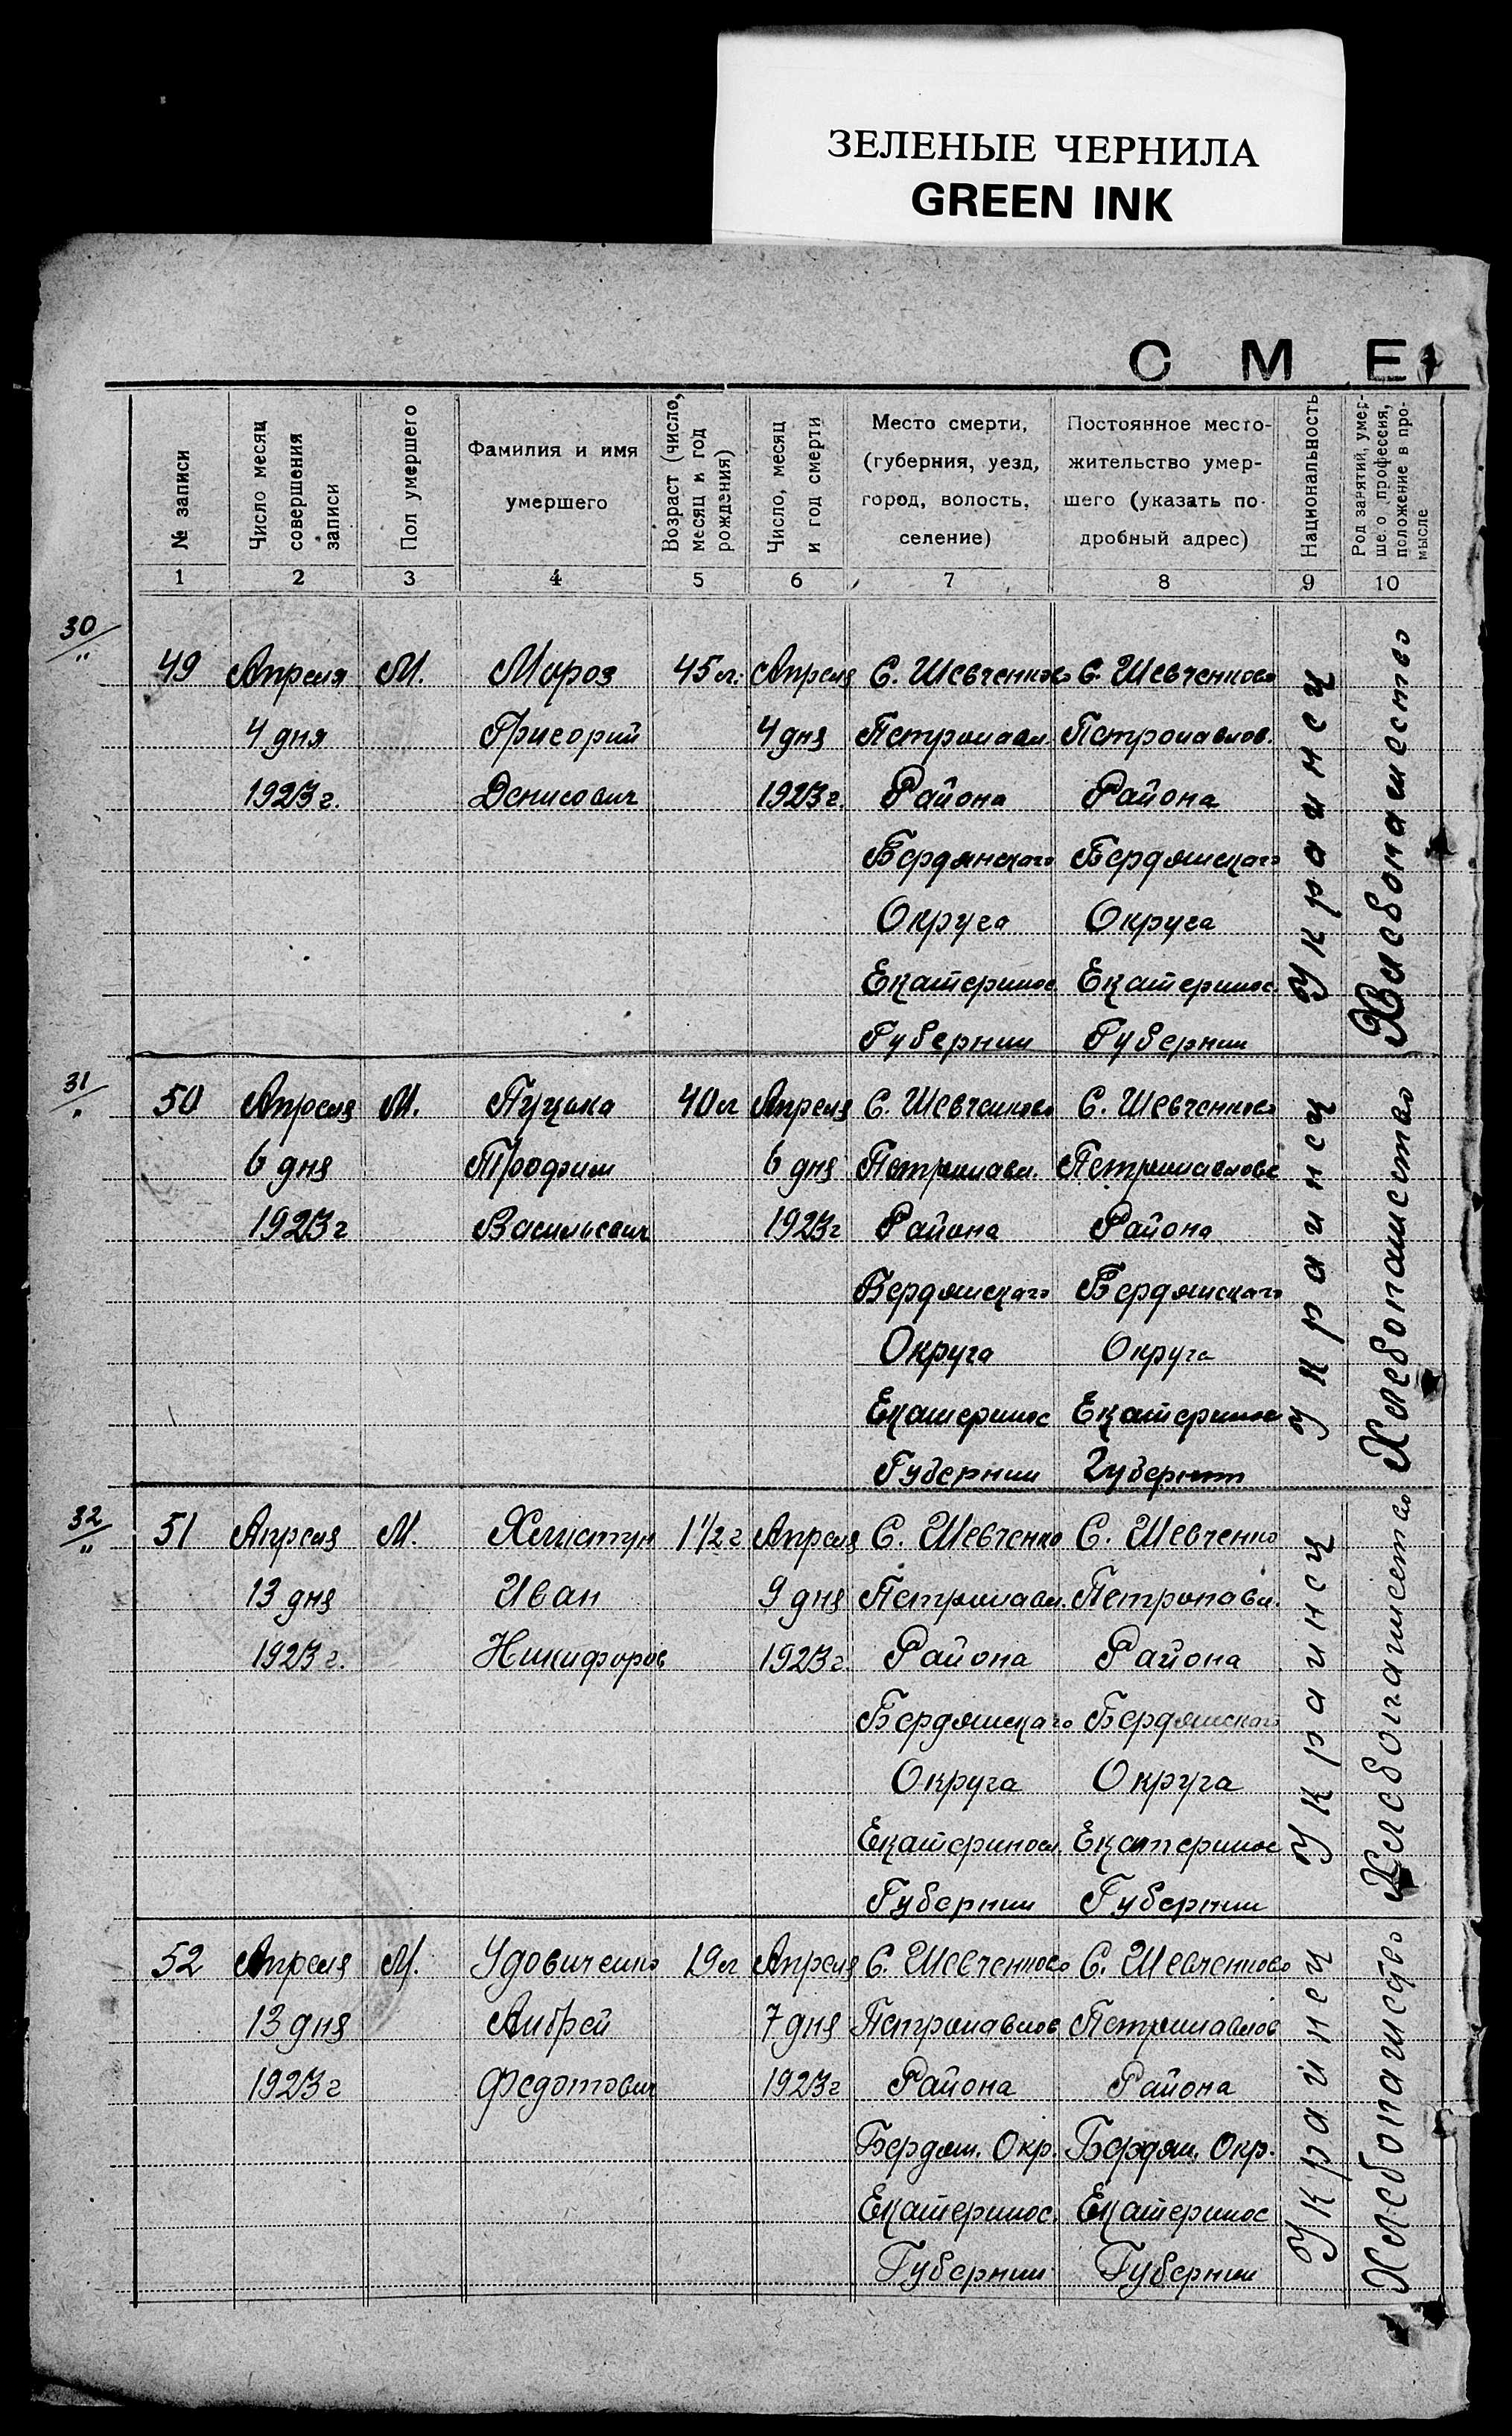 ЗЕЛЕНЫЕ ЧЕРНИЛА
GREEN INK
С М Е
№ записи
Число месяц совершения записи
Пол умершего
Фамилия и имя умершего
Возраст (число, месяц и год рождения)
Число, месяц и год смерти
Место смерти, (губерния, уезд, город, волость, селение)
Постоянное место-жительство умер-шего (указать по-дробный адрес)
Национальность
Род занятий, умер-шего, профессия, положение в про-мысле
1 2 3 4 5 6 7 8 9 10
30/"
49 Апреля М. Мороз 45 л. Апреля С. Шевченково С. Шевченково
4 дня Григорий 4 дня Петропавл. Петропавлов.
1923 г. Денисович 1923 г. Района Района
Бердянского Бердянского
Округа Округа
Екатеринос. Екатеринос.
Губернии Губернии
Украинец
Хлебопашество
31/"
50 Апреля М. Пуцыка 40 л Апреля С. Шевченково С. Шевченково
6 дня Трофим 6 дня Петропавл. Петропавловс
1923 г Васильевич 1923 г Района Района
Бердянского Бердянского
Округа Округа
Екатеринос Екатеринос
Губернии Губернии
Украинец
Хлебопашество
32/"
51 Апреля М. Хлистун 1 1/2 г Апреля С. Шевченко С. Шевченко
13 дня Иван 9 дня Петропавл. Петропавл.
1923 г. Никифоров 1923 г. Района Района
Бердянского Бердянского
Округа Округа
Екатеринос. Екатеринос
Губернии Губернии
Украинец
Хлебопашество
52 Апреля М. Удовиченко 19 л Апреля С. Шевченково С. Шевченково
13 дня Андрей 7 дня Петропавлов Петропавлов
1923 г Федотович 1923 г Района Района
Бердян. Окр. Бердян. Окр.
Екатеринос. Екатеринос
Губернии Губернии
Украинец
Хлебопашество